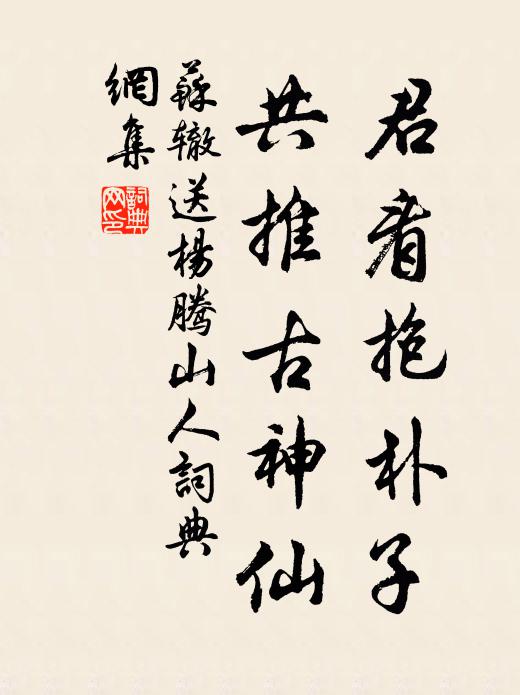 君看抱朴子
共推古神仙
蘇辙送楊騰山人詞典
網集
詞典
网印